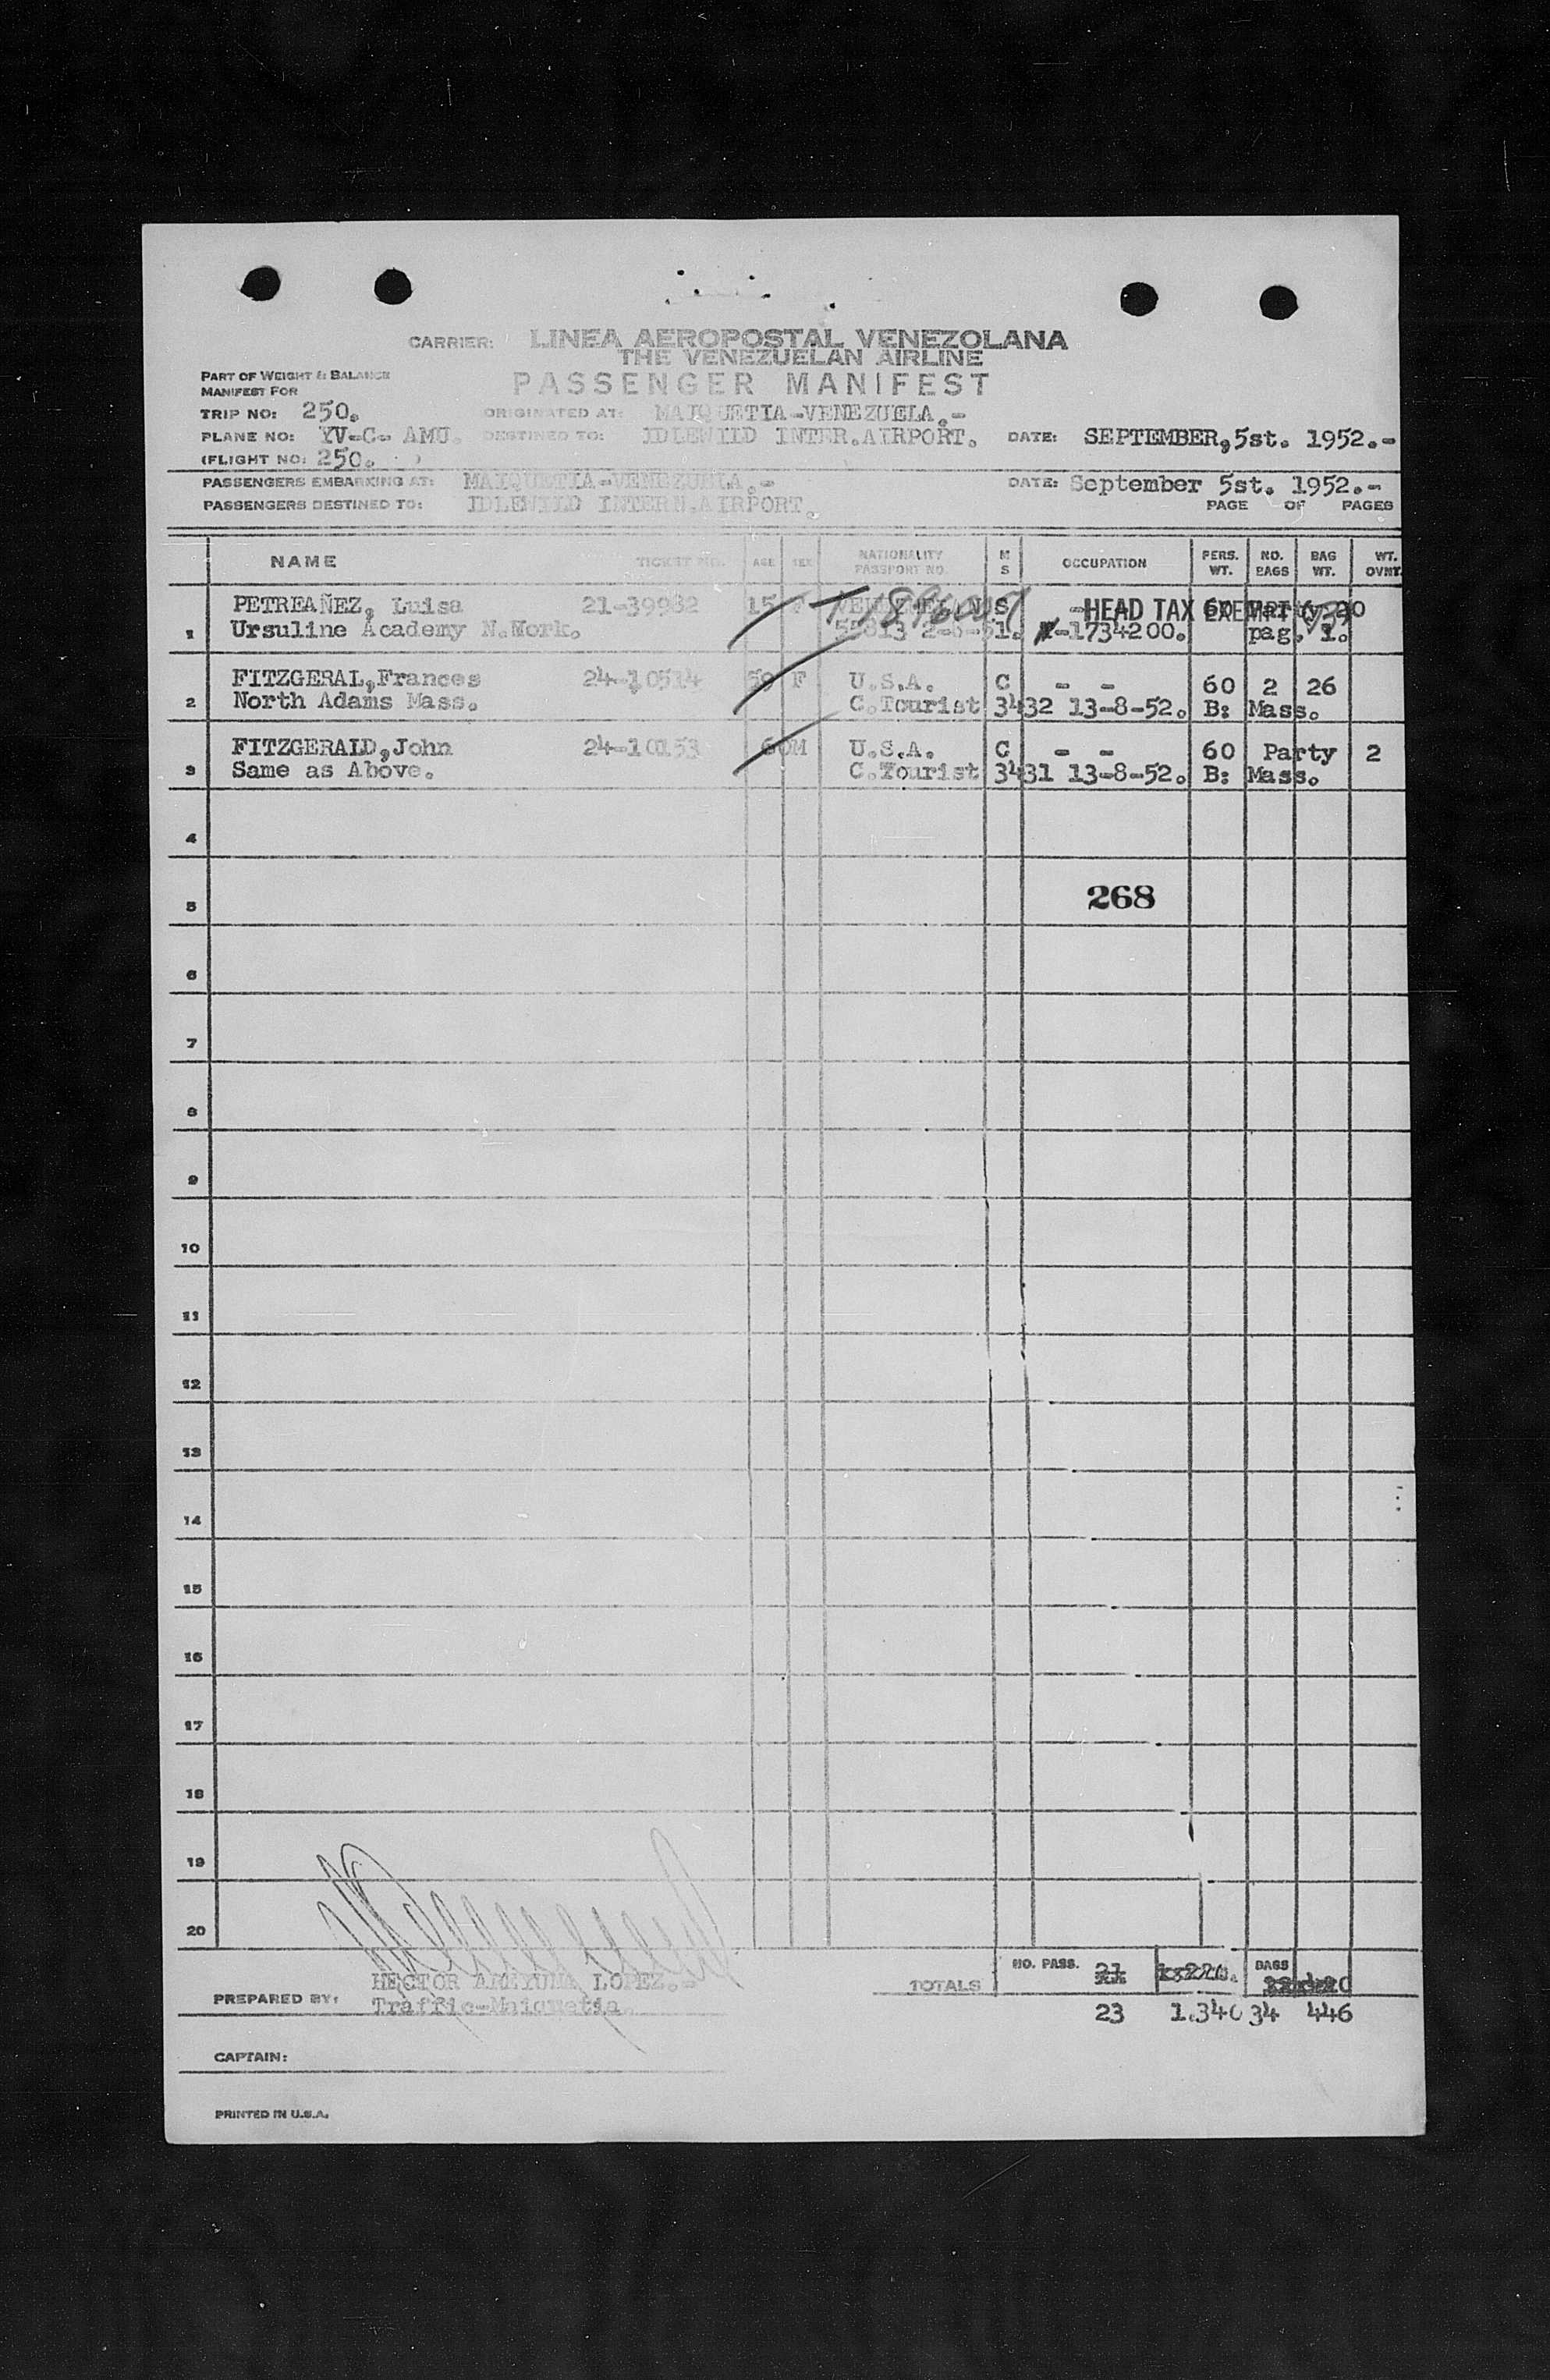 CARRIER: LINEA AEROPOSTAL VENEZOLANA
THE VENEZUELAN AIRLINE
PASSENGER MANIFEST
PART OF WEIGHT & BALANCE
MANIFEST FOR
TRIP NO: 250. ORIGINATED AT: MAIQUETIA-VENEZUELA.-
PLANE NO: YV-C- AMU. DESTINED TO: IDLEWILD INTER.AIRPORT. DATE: SEPTEMBER,5st. 1952.-
(FLIGHT NO: 250. )
PASSENGERS EMBARKING AT: MAIQUETIA-VENEZUELA.- DATE: September 5st. 1952.-
PASSENGERS DESTINED TO: IDLEWILD INTERN.AIRPORT. PAGE OF PAGES
NAME TICKET NO. AGE SEX NATIONALITY PASSPORT NO. M S OCCUPATION PERS. WT. NO. BAGS BAG WT. WT. OVNT.
PETREAÑEZ, Luisa 21-39982 15 F S HEAD TAX EXEMPT 60 20
1 Ursuline Academy N.Work. 55813 2-8-51. -1734200. pag. 1.
FITZGERAL,Frances 24-10514 59 F U.S.A. C - - 60 2 26
2 North Adams Mass. C.Tourist 3432 13-8-52. B: Mass.
FITZGERALD,John 24-10153 60 M U.S.A. C - - 60 Party 2
3 Same as Above. C.Tourist 3431 13-8-52. B: Mass.
4
268
5
6
7
8
9
10
11
12
13
14
15
16
17
18
19
20
HECTOR LOPEZ.- TOTALS NO. PASS. 21 BAGS
PREPARED BY: Traffic-Maiquetia 23 1.340 34 446
CAPTAIN:
PRINTED IN U.S.A.